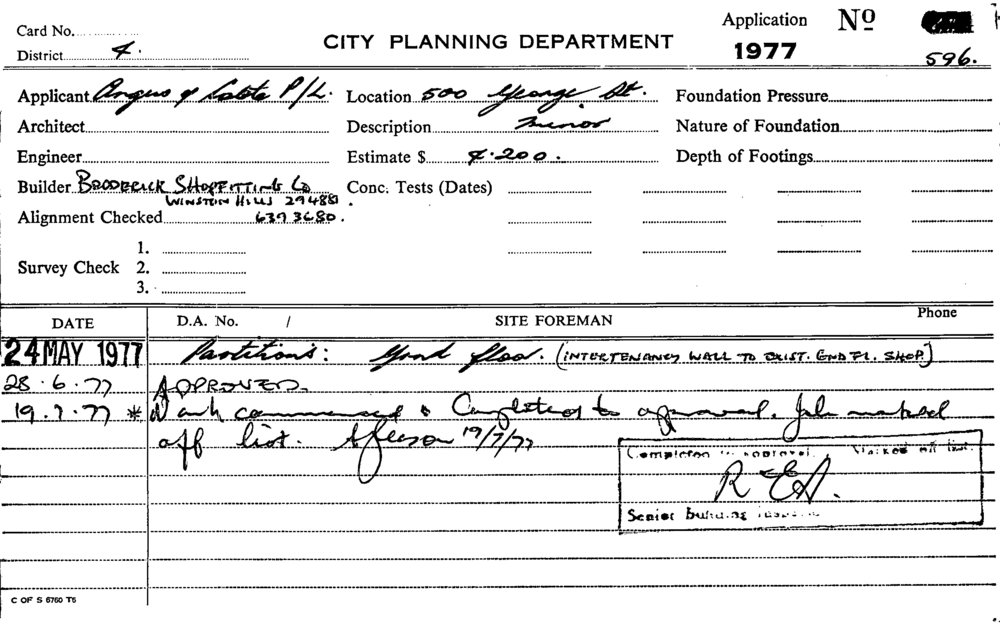 Card No.
District 4.
CITY PLANNING DEPARTMENT
Application Nº
1977
596.
Applicant Angus & Coote P/L.
Location 500 George St.
Foundation Pressure
Architect
Description minor
Nature of Foundation
Engineer
Estimate $ 4.200.
Depth of Footings
Builder BRODERICK SHOPFITTING Co
WINSTON HILLS
Conc. Tests (Dates)
Alignment Checked 639 3680.
1.
Survey Check 2.
3.
DATE D.A. No. / SITE FOREMAN Phone
24 MAY 1977 Partitions: Grnd floor. (INTERTENANCY WALL TO EXIST. GND FL. SHOP)
28.6.77 APPROVED.
19.7.77 * Work commenced & Completed to approval. Job marked
off list. 19/7/77
Completion to approval. Marked off list.
Senior building inspector
C OF S 6760 T5